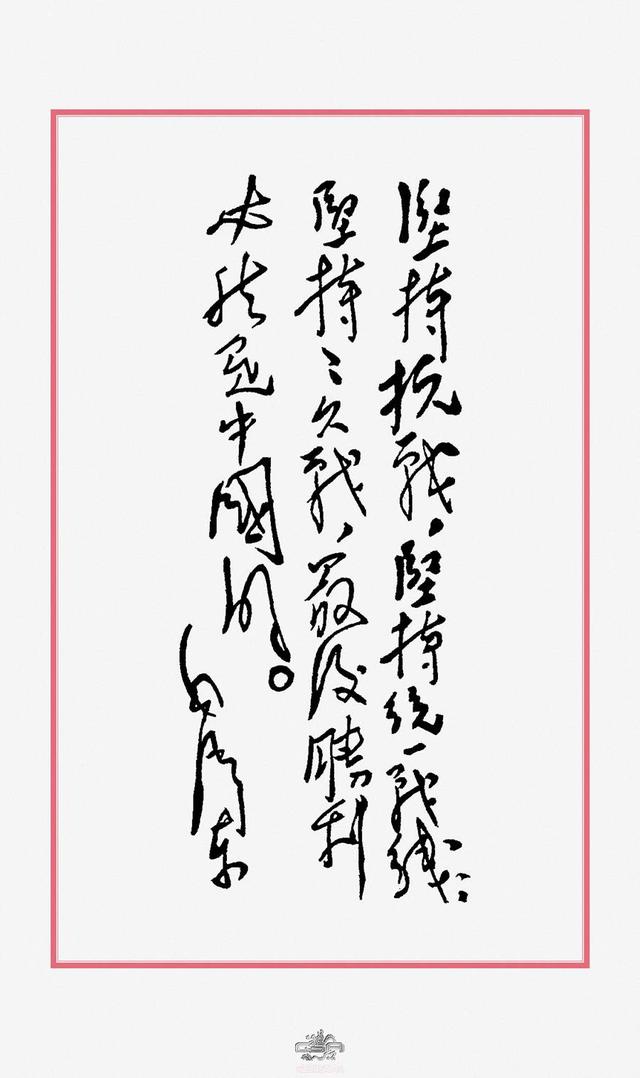 堅持抗戰，堅持統一戰綫，
堅持〻久戰，最後勝利
必然是中國的。
毛澤東